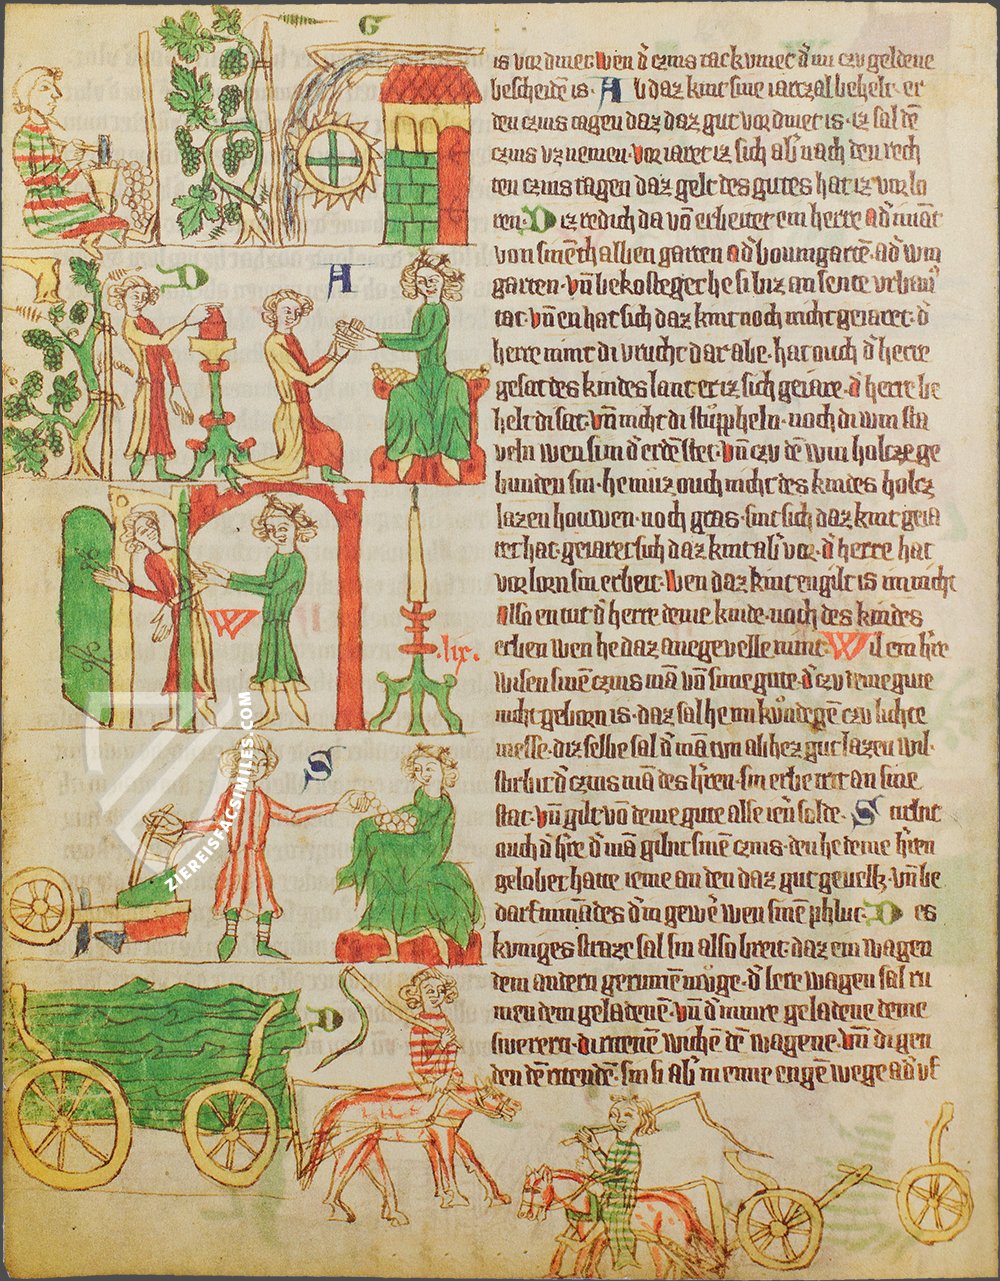 G
is vordinet. Wen d̄ czins tac kvmet d̄ im czv geldene
bescheidē is. Ab daz kint sine iartzal behelt. er
den czins tagen daz daz gut vordinet is. iz sal dē
czins vz nemen. vor iaret iz sich ab̓ nach den rech
ten czins tagen daz gelt des gutes hat iz vorlo
ren. Diz redich da vō erbeitet ein herre ad̓
von sinē garten ad̓ boumgartē. ad̓ win
garten. vn̄ bekosteget he si biz an sente vrbanꝰ
tac. vn̄ en hat sich daz kint noch nicht geiaret. d̓
herre nimt di vrucht dar abe. hat ouch d̓ herre
gesat des kindes lant er iz sich geiare. d̓ herre be
helt di sat. vn̄ nicht di stuppheln. noch di win sta
veln wen si in d̓ erdē stet. vn̄ czv dē win holcze ge
bunden sin. he muz ouch nicht des kindes holcz
lazen houwen. noch gras. sint sich daz kint geia
ret hat. geiaret sich daz kint ab̓ vor. d̓ herre hat
vor lorn sin erbeit. Wen daz kint engilt is im nicht
Also en tut d̓ herre deme kinde. noch des kindes
erben wen he daz anegevelle nimt. Wil ein hr̄e
wisen sinē czins mā vō sime gute. d̓ czv deme gute
nicht geborn is. daz sal he im kundegē czv lichte
messe. diz selbe sal d̓ mā tun ab hez gut lazen wil.
stirbit d̓ czins mā des hr̄en. sin erbe trit an sine
stat. vn̄ gilt vō deme gute alse ien̓ solde. Stirbit
ouch d̓ hr̄e d̓ mā gibit sinē czins. den he deme hr̄en
gelobet hatte ieme an den daz gut gevellt. vn̄ be
darf nimādes d̓ in gewe̓ wen sinē phluc. Des
kuniges straze sal sin also breit. daz ein wagen
dem andern gerumē muge. d̓ lere wagen sal ru
men dem geladenē. vn̄ d̓ minre geladene deme
swerern. di ritenē wichē dē wagene. vn̄ di gen
den dē ritendē. sin si ab̓ in eime engē wege ad̓ vf
D
A
W
.lix.
S
D
ZIEREISFACSIMILES.COM